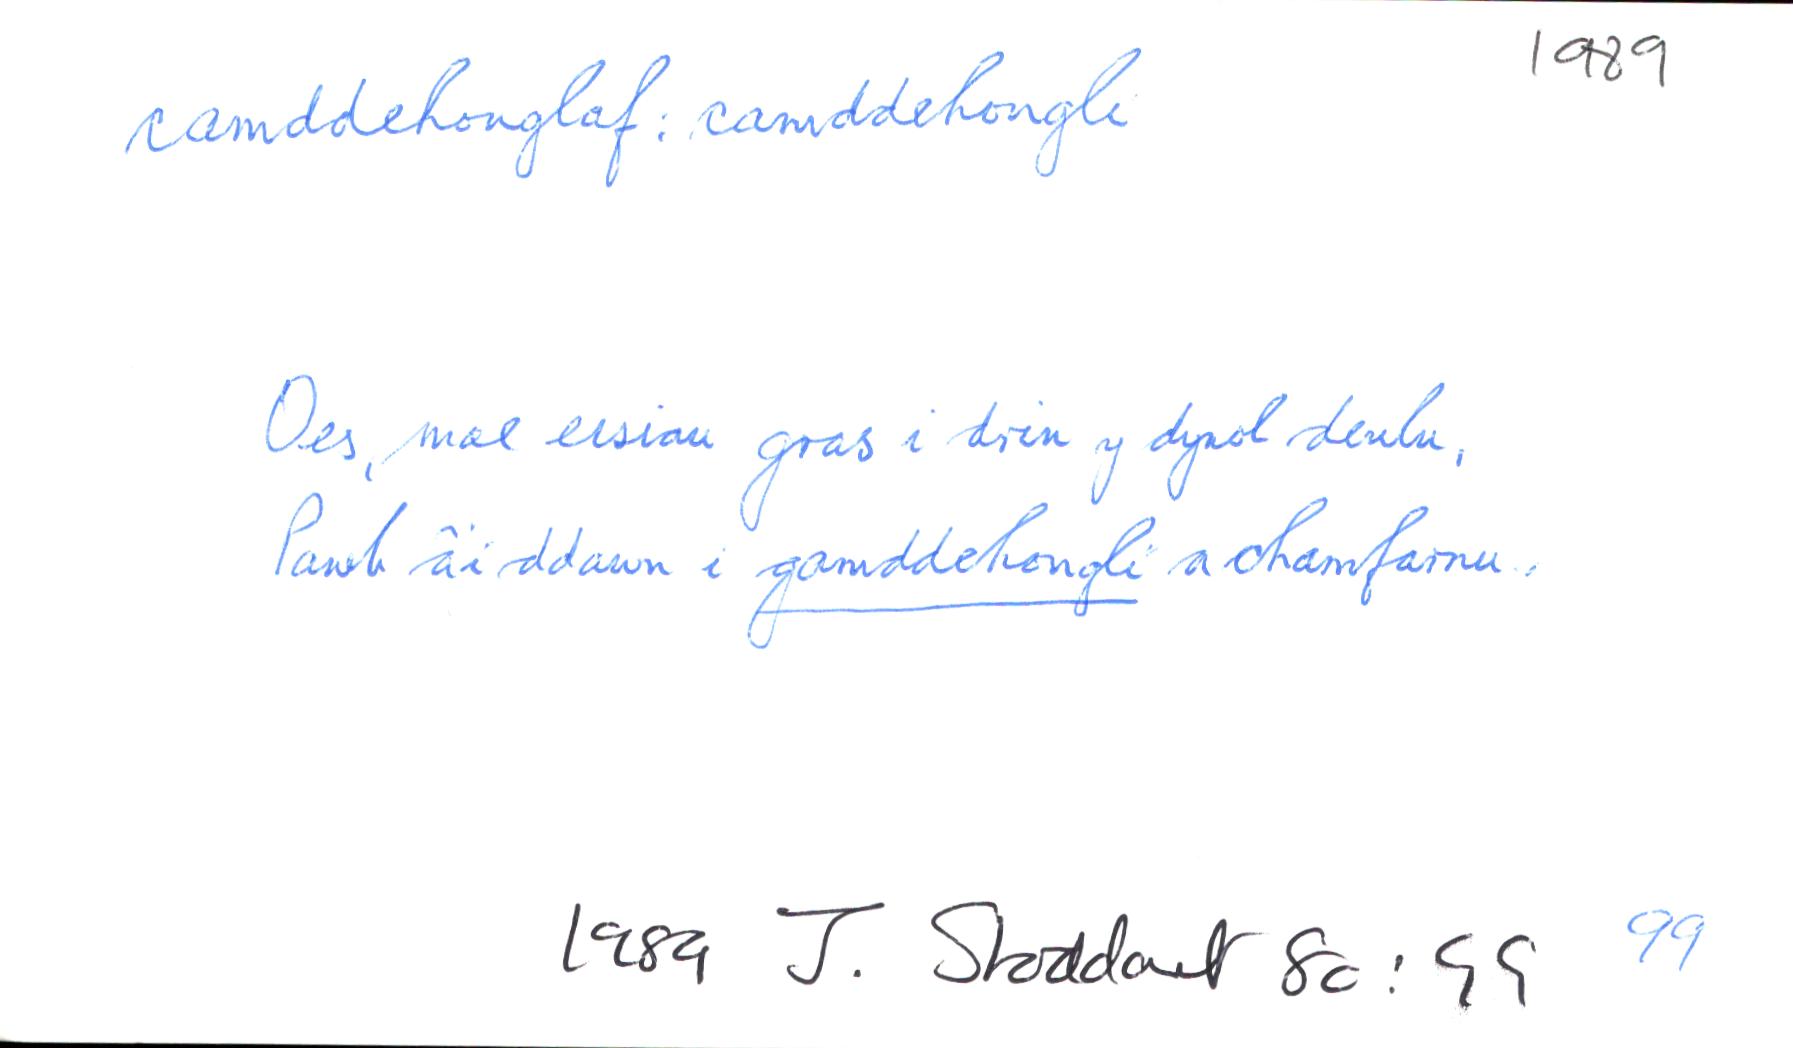 1989
camddehonglaf: camddehongli
Oes, mae eisiau gras i drin y dynol deulu,
Pawb â'i ddawn i gamddehongli a chamfarnu.
1989 J. Stoddart Sc: 99 99